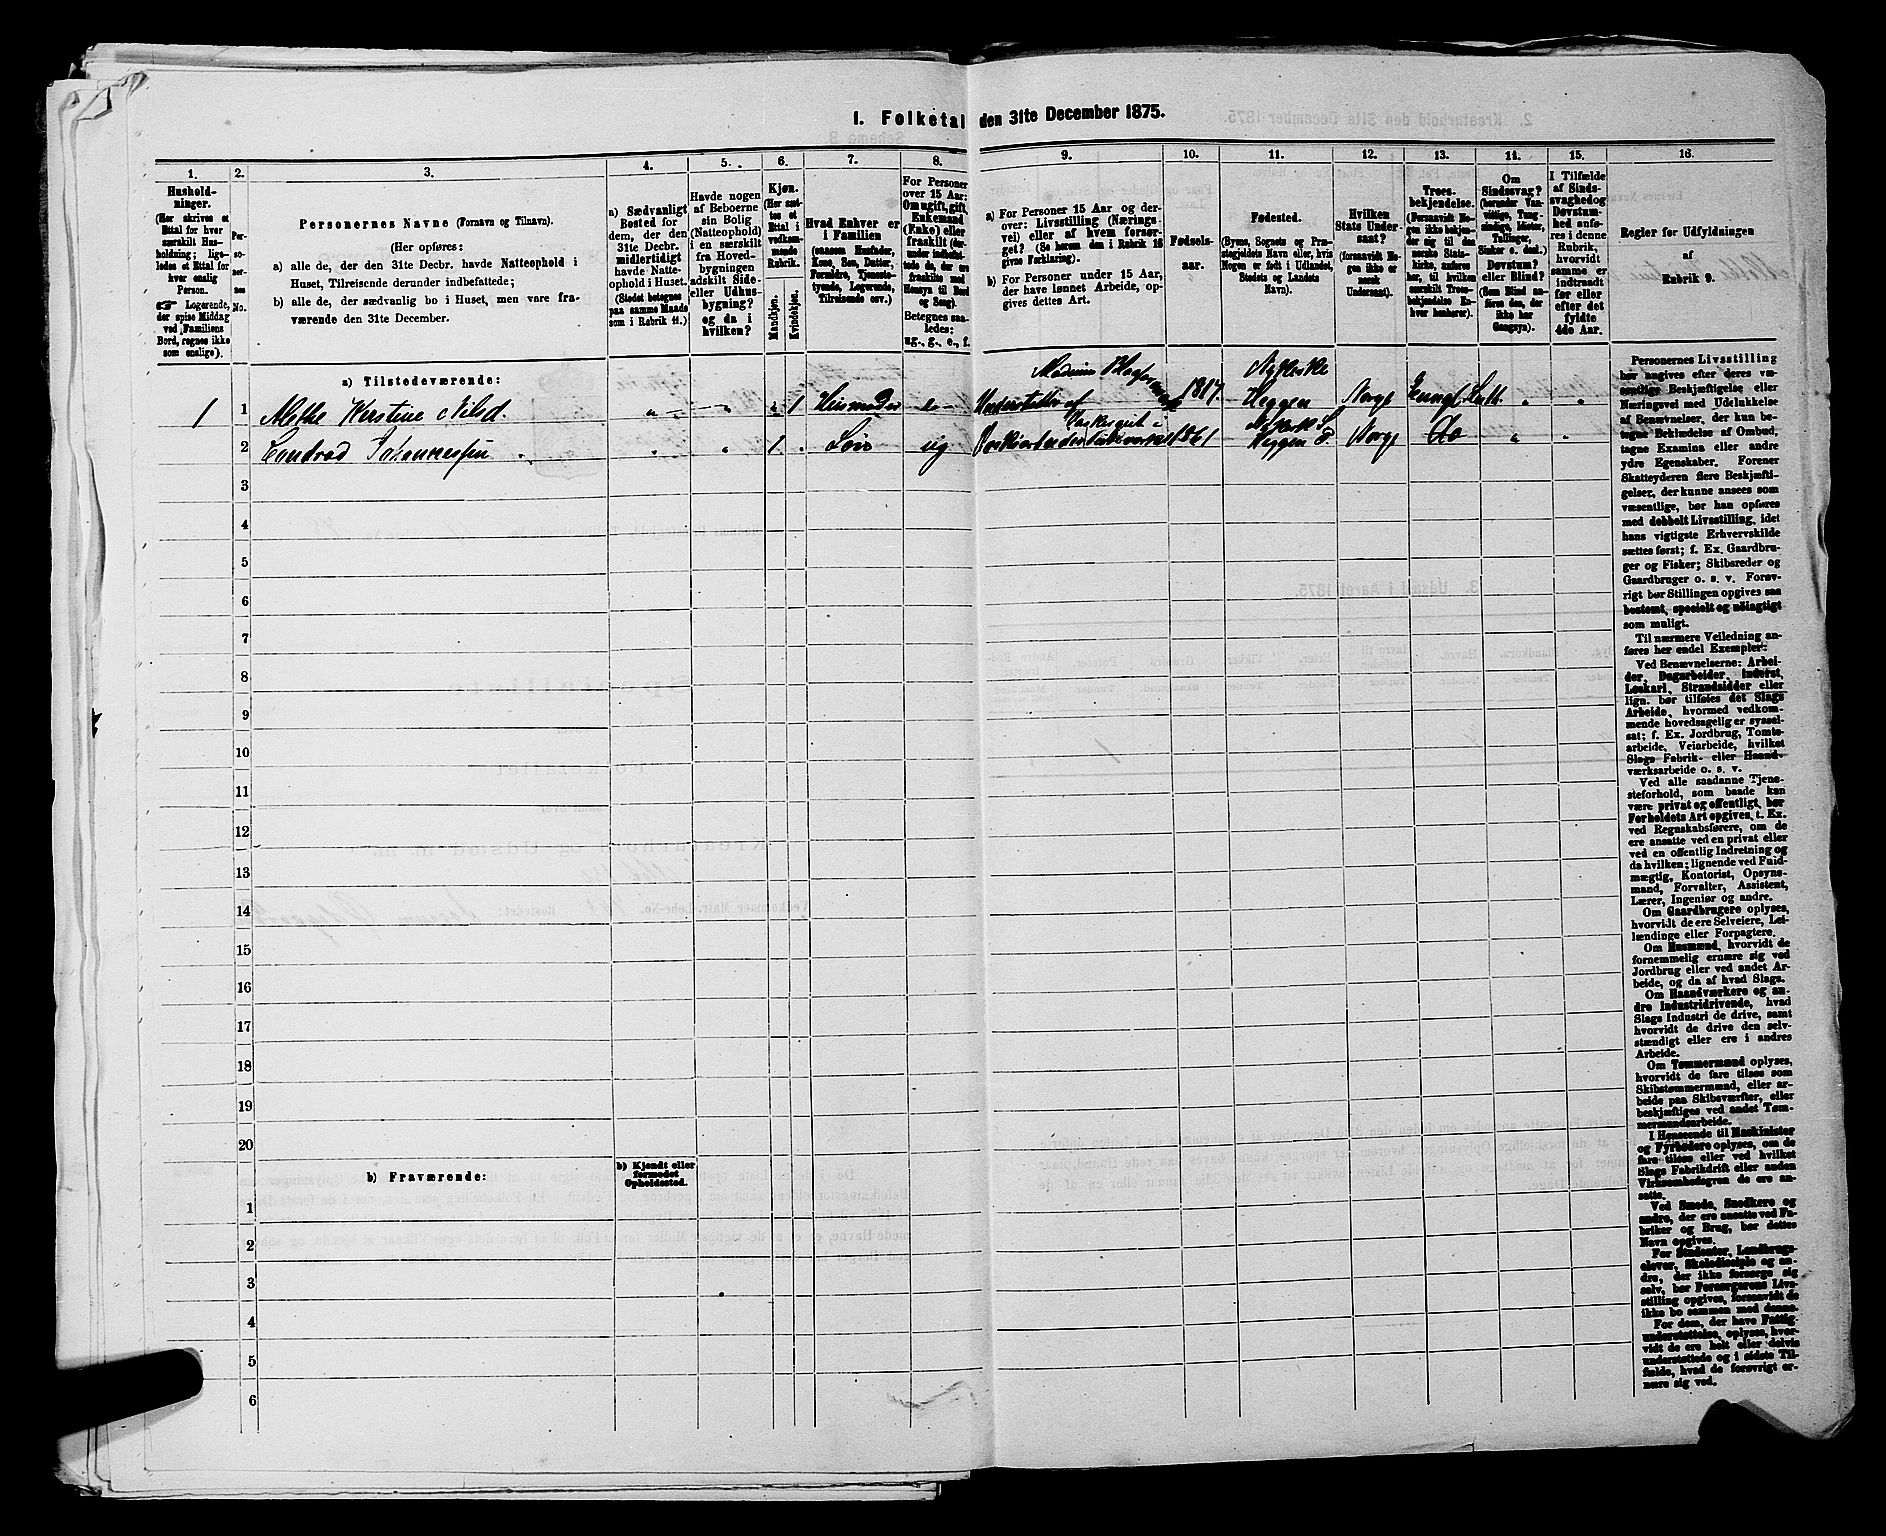 1. Folketal den 31te December 1875.
1. 2. 3. 4. 5. 6. 7. 8. 9. 10. 11. 12. 13. 14. 15. 16.
Hushold-
ninger.
(Her skrives et
Ettal for hver
særskilt Hus-
holdning; lige-
ledes et Ettal for
hver enslig
Person.
☞ Logerende,
der spise Middag
ved Familiens
Bord, regnes ikke
som enslige).
Per-
so-
ner-
nes
No.
Personernes Navne (Fornavn og Tilnavn).
(Her opføres:
a) alle de, der den 31te Decbr. havde Natteophold i
Huset, Tilreisende derunder indbefattede;
b) alle de, der sædvanlig bo i Huset, men vare fra-
værende den 31te December.
a) Sædvanligt
Bosted for
dem, der den
31te Decbr.
midlertidigt
havde Natte-
ophold i Huset.
(Stedet betegnes
paa samme Maade
som i Rubrik 11.)
Havde nogen
af Beboerne
sin Bolig
(Natteophold)
i en særskilt
fra Hoved-
bygningen
adskilt Side-
eller Udhus-
bygning?
og da i
hvilken?
Kjøn.
(Her sæt-
tes et
Ettal i
vedkom-
mende
Rubrik.
Mandkjøn.
Kvindekjøn.
Hvad Enhver er
i Familien
(saasom Husfader,
Kone, Søn, Datter,
Forældre, Tjeneste-
tyende, Logerende,
Tilreisende osv.)
For Personer
over 15 Aar:
Om ugift, gift,
Enkemand
(Enke) eller
fraskilt (der-
under indbefat-
tede de, der ere
fraskilte med
Hensyn til Bord
og Seng).
Betegnes saa-
ledes:
ug., g., e., f.
a) For Personer 15 Aar og der-
over: Livsstilling (Nærings-
vei) eller af hvem forsør-
get? (Se herom den i Rubrik 16
givne Forklaring).
b) For Personer under 15 Aar,
der have lønnet Arbeide, op-
gives dettes Art.
Fødsels-
aar.
Fødested.
(Byens, Sognets og Præ-
stegjeldets Navn eller, hvis
Nogen er født i Udlandet,
Stedets og Landets
Navn).
Hvilken
Stats Under-
saat?
(forsaavidt No-
gen ikke er
norsk
Undersaat).
Troes-
bekjendelse.
(Forsaavidt No-
gen ikke bekjen-
der sig til den
norske Stats-
kirke, anføres
her, til hvilken
særskilt Troes-
bekjendelse En-
hver henhører).
Om
Sindssvag?
(herunder Van-
vittige, Tung-
sindige, Idioter,
Tullinger,
Sinker o. desl.)
Døvstum?
eller Blind?
(Som Blind an-
føres den, der
ikke har
Gangsyn).
I Tilfælde
af Sinds-
svaghed og
Døvstum-
hed anfø-
res i denne
Rubrik,
hvorvidt
samme er
indtraadt
før eller
efter det
fyldte
4de Aar.
Regler for Udfyldningen
af
Rubrik 9.
a) Tilstedeværende:
1 1 Methe Kirstine Nilsd. " " " 1 Husmoder e Understøttes af 1817 Heggen Norge Evangl. Luth. " "
2 Condrad Johannessen " " 1 " Søn ug 1861 Heggen Norge Do " "
3
4
5
6
7
8
9
10
11
12
13
14
15
16
17
18
19
20
b) Fraværende:
b) Kjendt eller
formodet
Opholdssted.
1
2
3
4
5
6
Personernes Livsstilling
bør angives efter deres væ-
sentlige Beskjæftigelse eller
Næringsvei med Udelukkelse
af Benævnelser, der kun be-
tegne Beklædelse af Ombud,
tagne Examina eller andre
ydre Egenskaber. Forener
Skatteyderen flere Beskjæfti-
gelser, der kunne ansees som
væsentlige, bør han opføres
med dobbelt Livsstilling, idet
hans vigtigste Erhvervskilde
sættes først; f. Ex. Gaardbru-
ger og Fisker; Skibsreder og
Gaardbruger o. s. v. Forøv-
rigt bør Stillingen opgives saa
bestemt, specielt og nöiagtigt
som muligt.
Til nærmere Veiledning an-
føres her endel Exempler:
Ved Benævnelserne: Arbei-
der, Dagarbeider, Inderst,
Løskarl, Strandsidder eller
lign. bør tilføies det Slags
Arbeide, hvormed vedkom-
mende hovedsagelig er syssel-
sat; f. Ex. Jordbrug, Tomte-
arbeide, Veiarbeide, hvilket
Slags Fabrik- eller Haand-
værksarbeide o. s. v.
Ved alle saadanne Tjene-
steforhold, som baade kan
være privat og offentligt, bør
Forholdets Art opgives, t. Ex.
ved Regnskabsførere, om de
ere ansatte ved en privat eller
ved en offentlig Indretning og
da hvilken; lignende ved Fuld-
mægtig, Kontorist, Opsyns-
mand, Forvalter, Assistent,
Lærer, Ingeniør og andre.
Om Gaardbrugere oplyses,
hvorvidt de ere Selveiere, Lei-
lændinge eller Forpagtere.
Om Husmænd, hvorvidt de
fornemmelig ernære sig ved
Jordbrug eller ved andet Ar-
beide, og da af hvad Slags.
Om Haandværkere og an-
dre Industridrivende, hvad
Slags Industri de drive, samt
hvorvidt de drive den selv-
stændigt eller ere i andres
Arbeide.
Om Tømmermænd oplyses,
hvorvidt de fare tilsøs som
Skibstømmermænd, eller ar-
beide paa Skibsværfter, eller
beskjæftiges ved andet Tøm-
mermandsarbeide.
I Henseende til Maskinister
og Fyrbødere oplyses, om de
fare tilsøs eller ved hvilket
Slags Fabrikdrift eller anden
Virksomhed de ere an-
satte.
Ved Smede, Snedkere og
andre, der ere ansatte ved Fa-
briker og Brug, bør dettes
Navn opgives.
For Studenter, Landbrugs-
elever, Skoledisciple og an-
dre, der ikke forsørge sig
selv, bør Forsørgerens Livs-
stilling opgives, forsaavidt de
ikke bo sammen med denne.
For dem, der have Fattig-
understøttelse, oplyses, hvor-
vidt de ere helt eller delvis
understøttede og i sidste Til-
fælde, hvad de forøvrigt er-
nære sig ved.